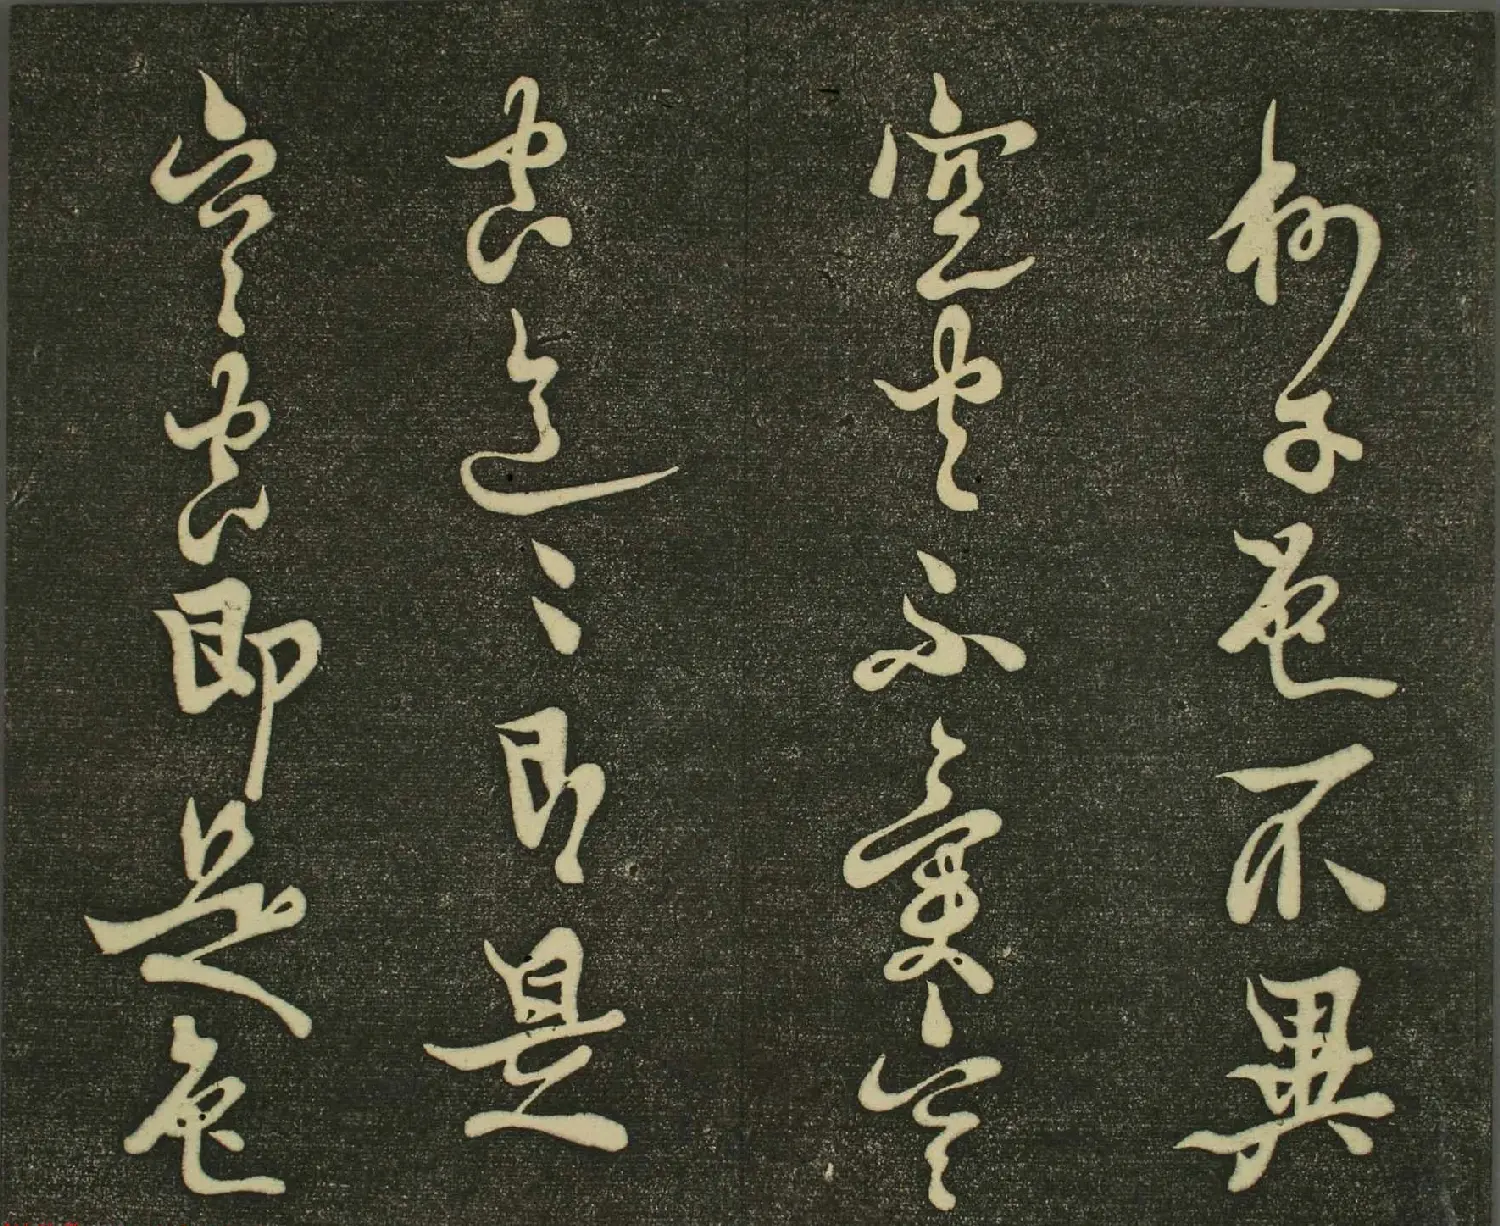 利子色不異
空不異空
色〻即是
空即是色